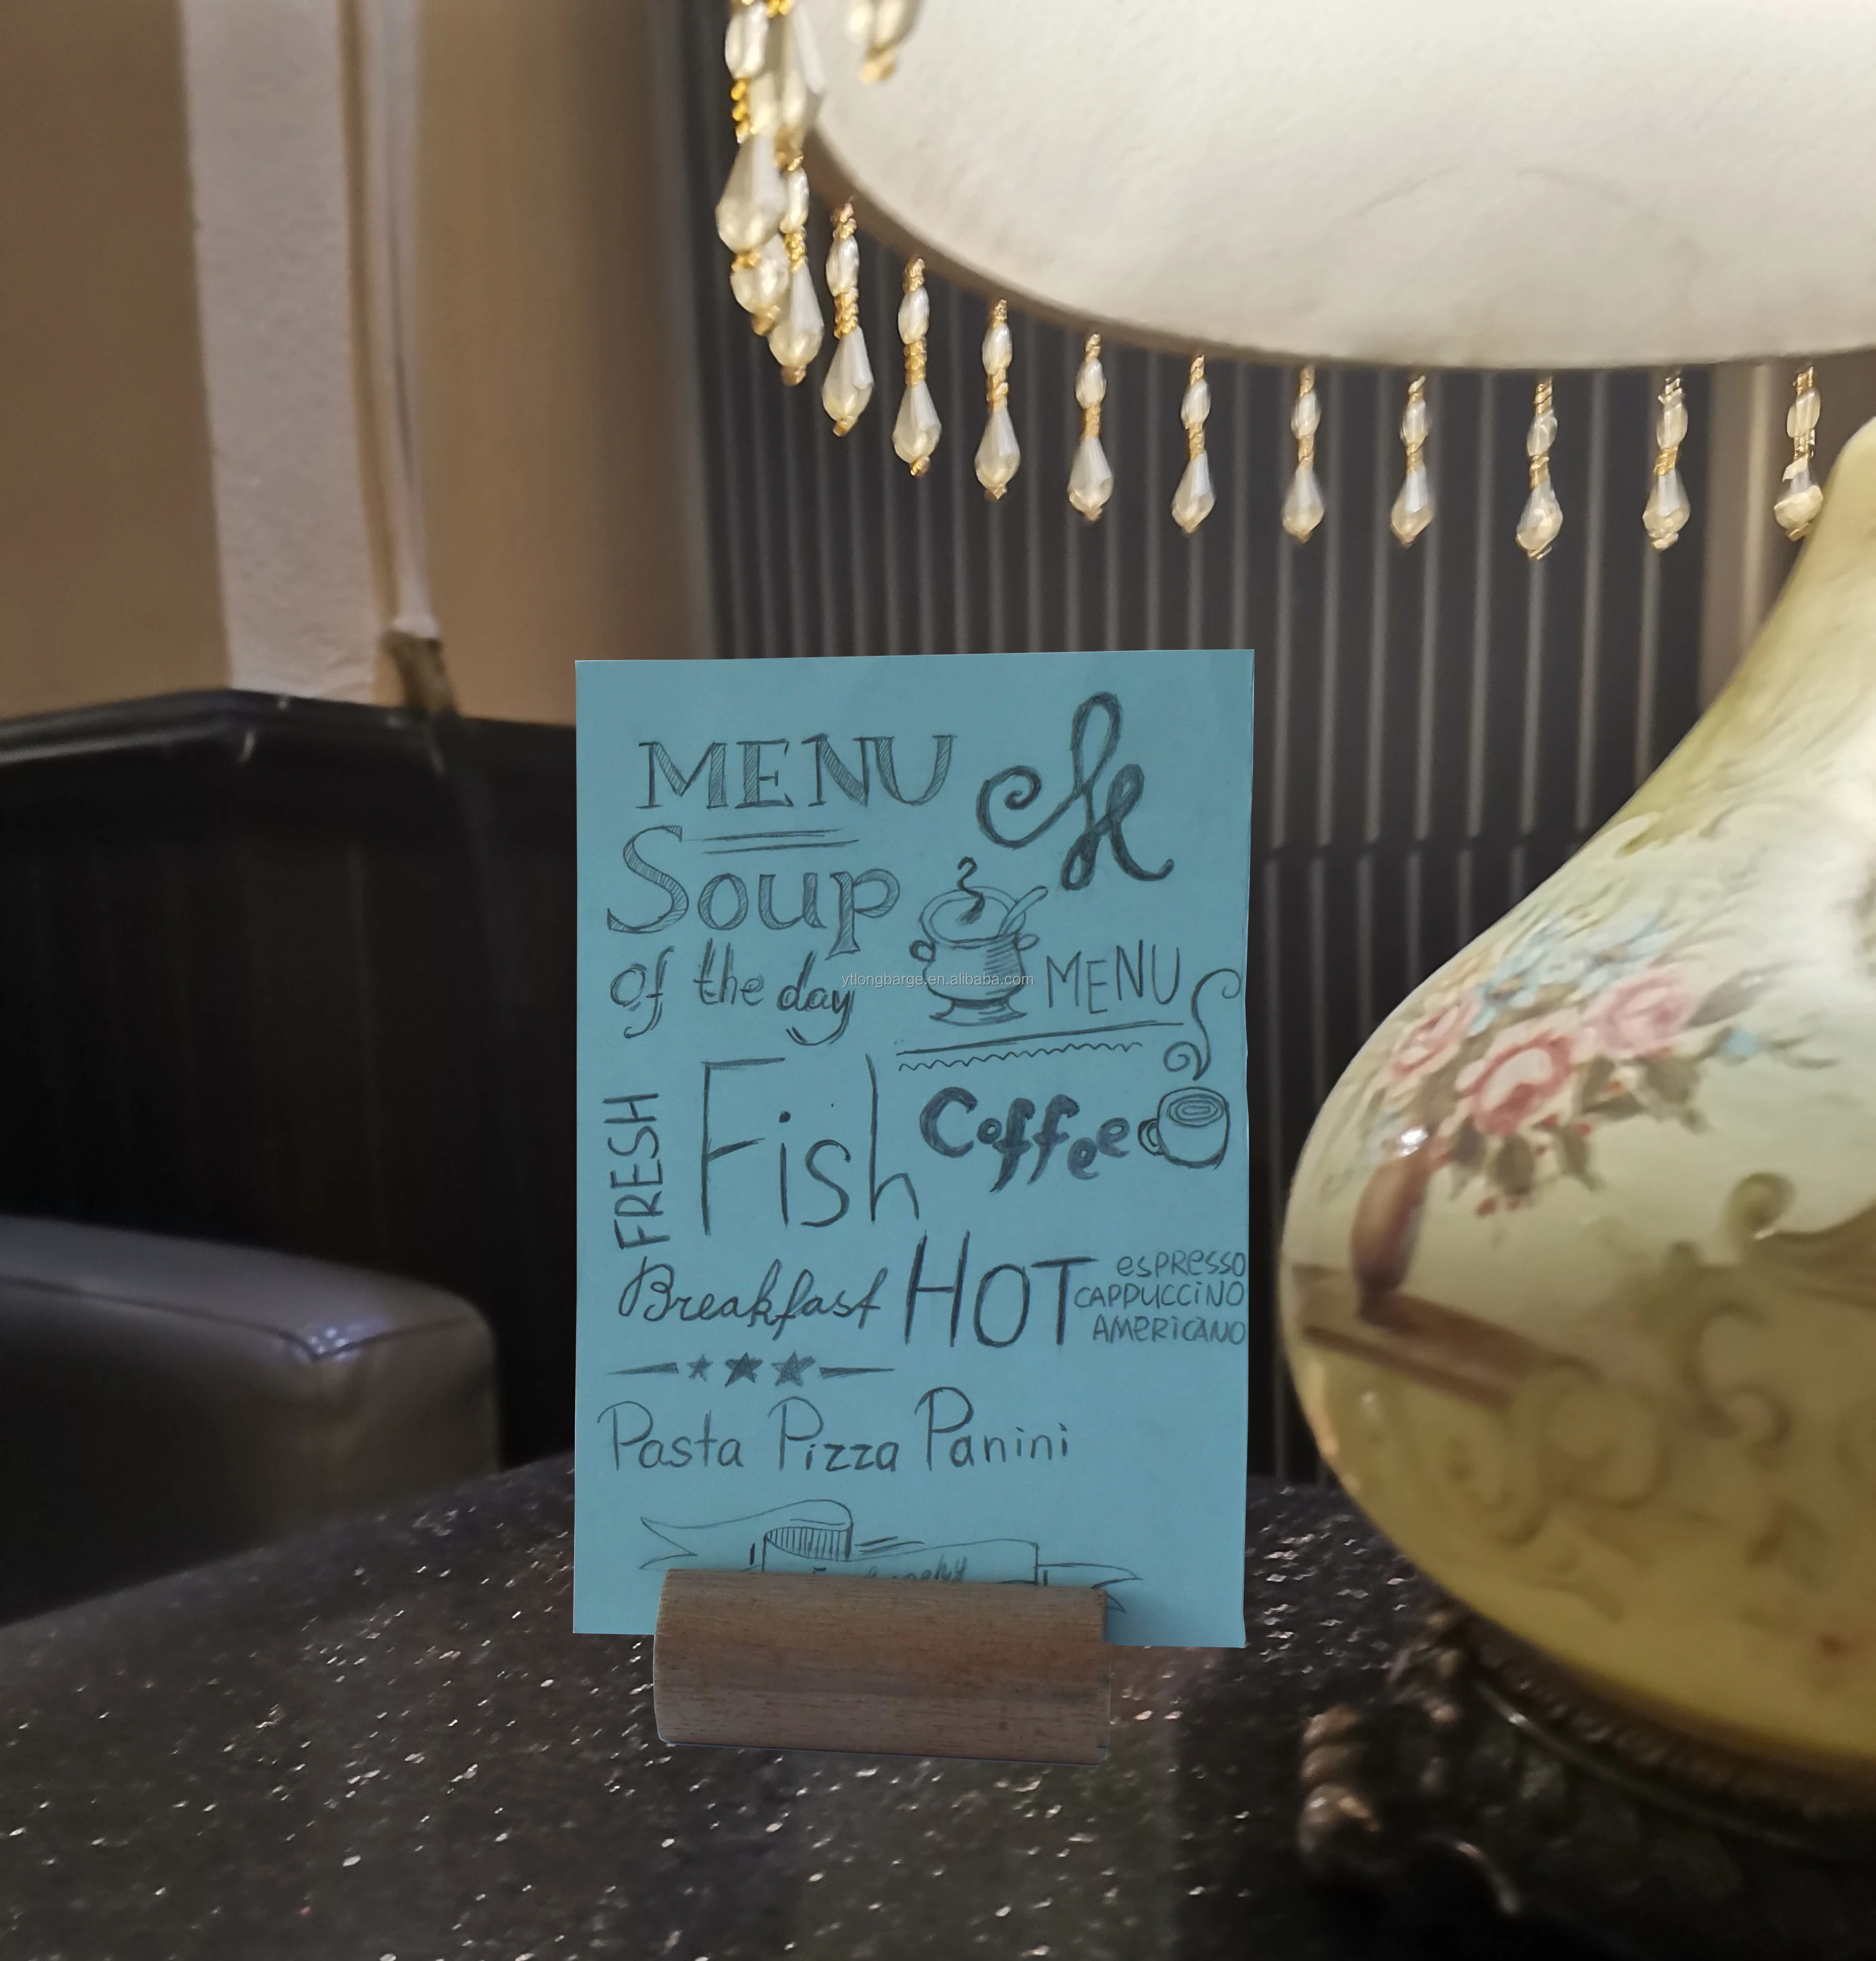 MENU
Soup
of the day
MENU
ytlongbarge.en.alibaba.com
FRESH
Fish
Coffee
Breakfast
HOT
espresso
CAPPUCCINO
AMERICANO
Pasta Pizza Panini